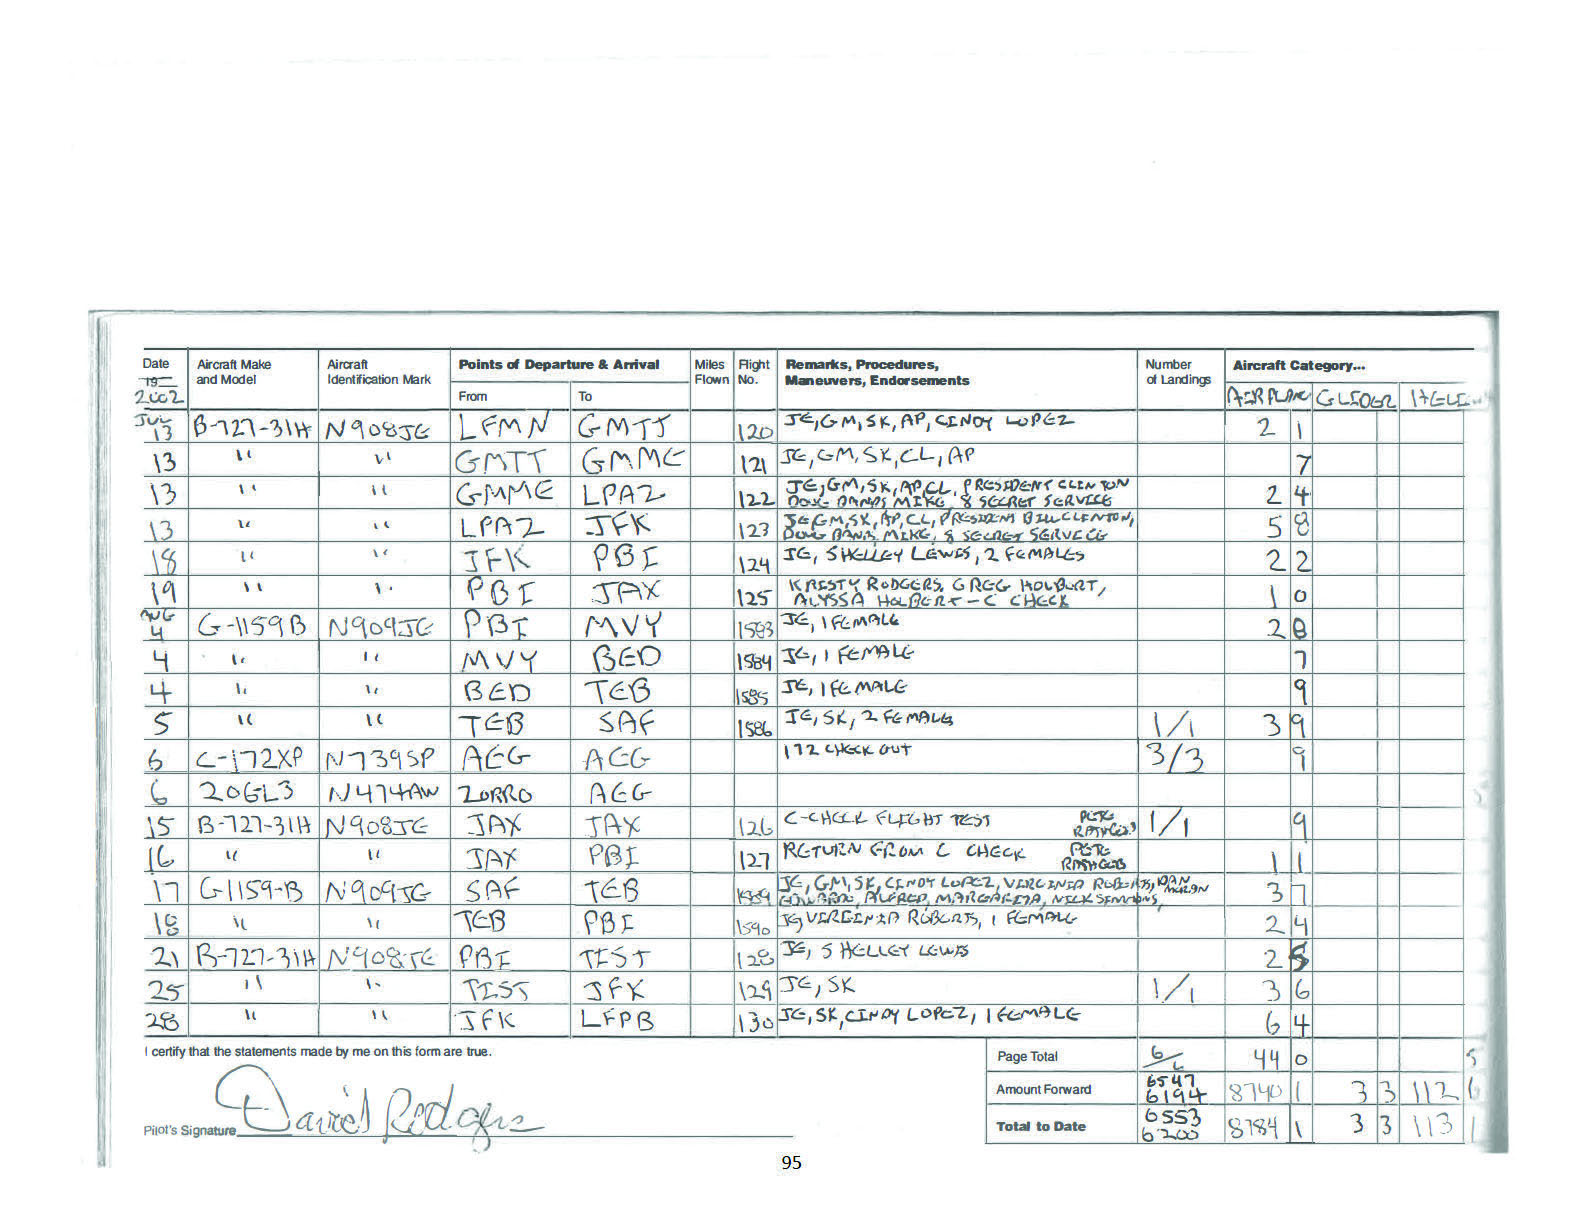 Date Aircraft Make Aircraft Points of Departure & Arrival Miles Flight Remarks, Procedures, Number Aircraft Category...
19 and Model Identification Mark Flown No. Maneuvers, Endorsements of Landings
2002 From To AIRPLANE GLIDER HELI
JUL
13 B-727-31H N908JE LFMN GMTT 120 JE, GM, SK, AP, CINDY LOPEZ 2 1
13 " " GMTT GMME 121 JE, GM, SK, CL, AP 7
13 " " GMME LPAZ 122 JE, GM, SK, AP, CL, PRESIDENT CLINTON 2 4
DOUG BANDS MIKE, 8 SECRET SERVICE
13 " " LPAZ JFK 123 JE, GM, SK, AP, CL, PRESIDENT BILL CLINTON, 5 8
DOUG BANDS, MIKE, 8 SECRET SERVICE
18 " " JFK PBI 124 JE, SHELLEY LEWIS, 2 FEMALES 2 2
19 " " PBI JAX 125 KRISTY RODGERS, GREG HOLBERT, 1 0
ALYSSA HOLBERT - C CHECK
AUG
4 G-1159B N909JE PBI MVY 1583 JE, 1 FEMALE 2 8
4 " " MVY BED 1584 JE, 1 FEMALE 7
4 " " BED TEB 1585 JE, 1 FEMALE 9
5 " " TEB SAF 1586 JE, SK, 2 FEMALES 1/1 3 9
6 C-172XP N739SP AEG AEG 172 CHECK OUT 3/3 9
6 206L3 N474AW ZORRO AEG
15 B-727-31H N908JE JAX JAX 126 C-CHECK FLIGHT TEST PETE 1/1 9
RATHGEB
16 " " JAX PBI 127 RETURN FROM C CHECK PETE 1 1
RATHGEB
17 G1159-B N909JE SAF TEB 1589 JE, GM, SK, CINDY LOPEZ, VIRGINIA ROBERTS, DAN 3 7
EDWARDO, ALFRED, MARGARITA, NICK SIMMONS,
18 " " TEB PBI 1590 JE, VIRGINIA ROBERTS, 1 FEMALE 2 4
21 B-727-31H N908JE PBI TIST 128 JE, SHELLEY LEWIS 2 5
25 " " TIST JFK 129 JE, SK 1/1 3 6
28 " " JFK LFPB 130 JE, SK, CINDY LOPEZ, 1 FEMALE 6 4
I certify that the statements made by me on this form are true. Page Total 6/6 44 0 5
Amount Forward 6547 6194 8740 1 3 3 112 6
Pilot's Signature David Rodgers Total to Date 6553 6200 8784 1 3 3 113 1
95